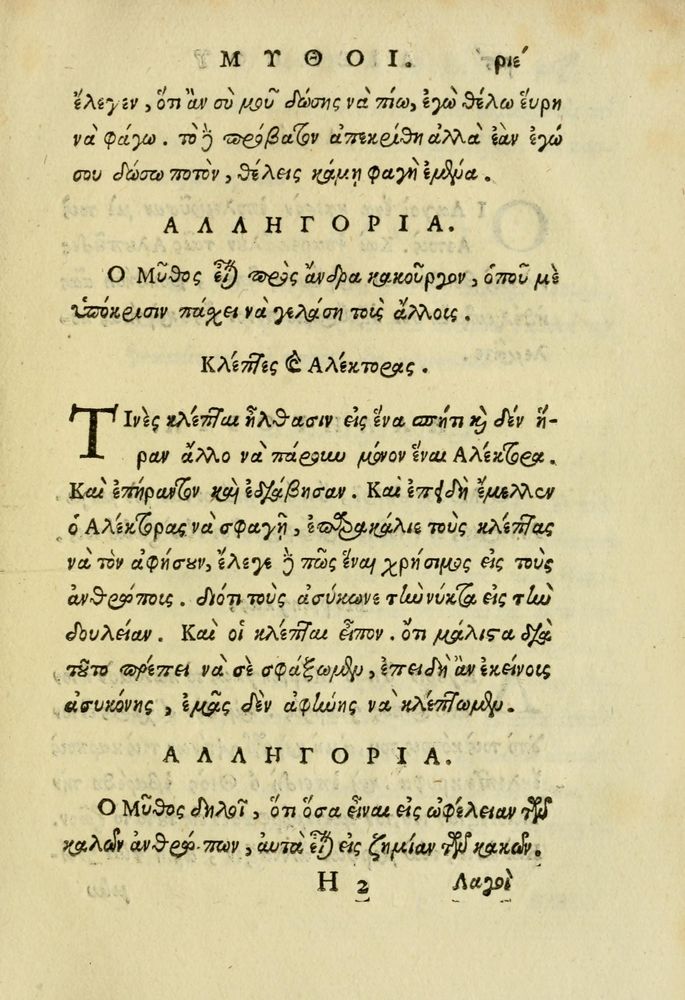 ΜΥΘΟΙ. ριέ
ἔλεγεν, ὅτι ἂν σὺ μοῦ δώσης νὰ πίω, ἐγὼ θέλω ἕυρη
νὰ φάγω. τὸ δὲ πρόβατον ἀπεκρίθη ἀλλὰ ἐὰν ἐγώ
σου δώσω ποτὸν, θέλεις κάμῃ φαγὴ ἐμένα.
ΑΛΛΗΓΟΡΙΑ.
Ο Μῦθος πρὸς ἄνδρα κακοῦργον, ὁποῦ μὲ
ὑπόκρισιν πάχει νὰ γελάση τοὶς ἄλλοις.
Κλέπτες καὶ Αλέκτορας.
ΤΙνὲς κλέπται ἦλθασιν εἰς ἕνα σπήτι καὶ δέν ἥ-
ραν ἄλλο νὰ πάρουν μόνον ἕναν Αλέκτορα.
Καὶ ἐπῆραντον καὶ ἐδιάβησαν. Καὶ ἐπειδὴ ἔμελλεν
ὁ Αλέκτορας νὰ σφαγῇ, ἐπαρακάλιε τοὺς κλέπτας
νὰ τὸν ἀφήσουν, ἔλεγε δὲ πῶς ἔναι χρήσιμος εἰς τοὺς
ἀνθρώποις. διότι τοὺς ἀσύκωνε τὴν νύκτα εἰς τὴν
δουλείαν. Καὶ οἱ κλέπται εἶπον. ὅτι μάλιστα διὰ
τοῦτο πρέπει νὰ σὲ σφάξωμεν, ἐπειδὴ ἂν ἐκείνοις
ἀσυκόνης, ἐμᾶς δὲν ἀφήνης νὰ κλέπτωμεν.
ΑΛΛΗΓΟΡΙΑ.
Ο Μῦθος δηλοῖ, ὅτι ὅσα εἶναι εἰς ὠφέλειαν τῶν
καλῶν ἀνθρώπων, ἀυτὰ εἰς ζημίαν τῶν κακῶν.
Η 2 Λαγοὶ